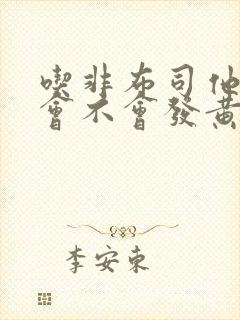 喫非布司他
會不會發黃
李安東